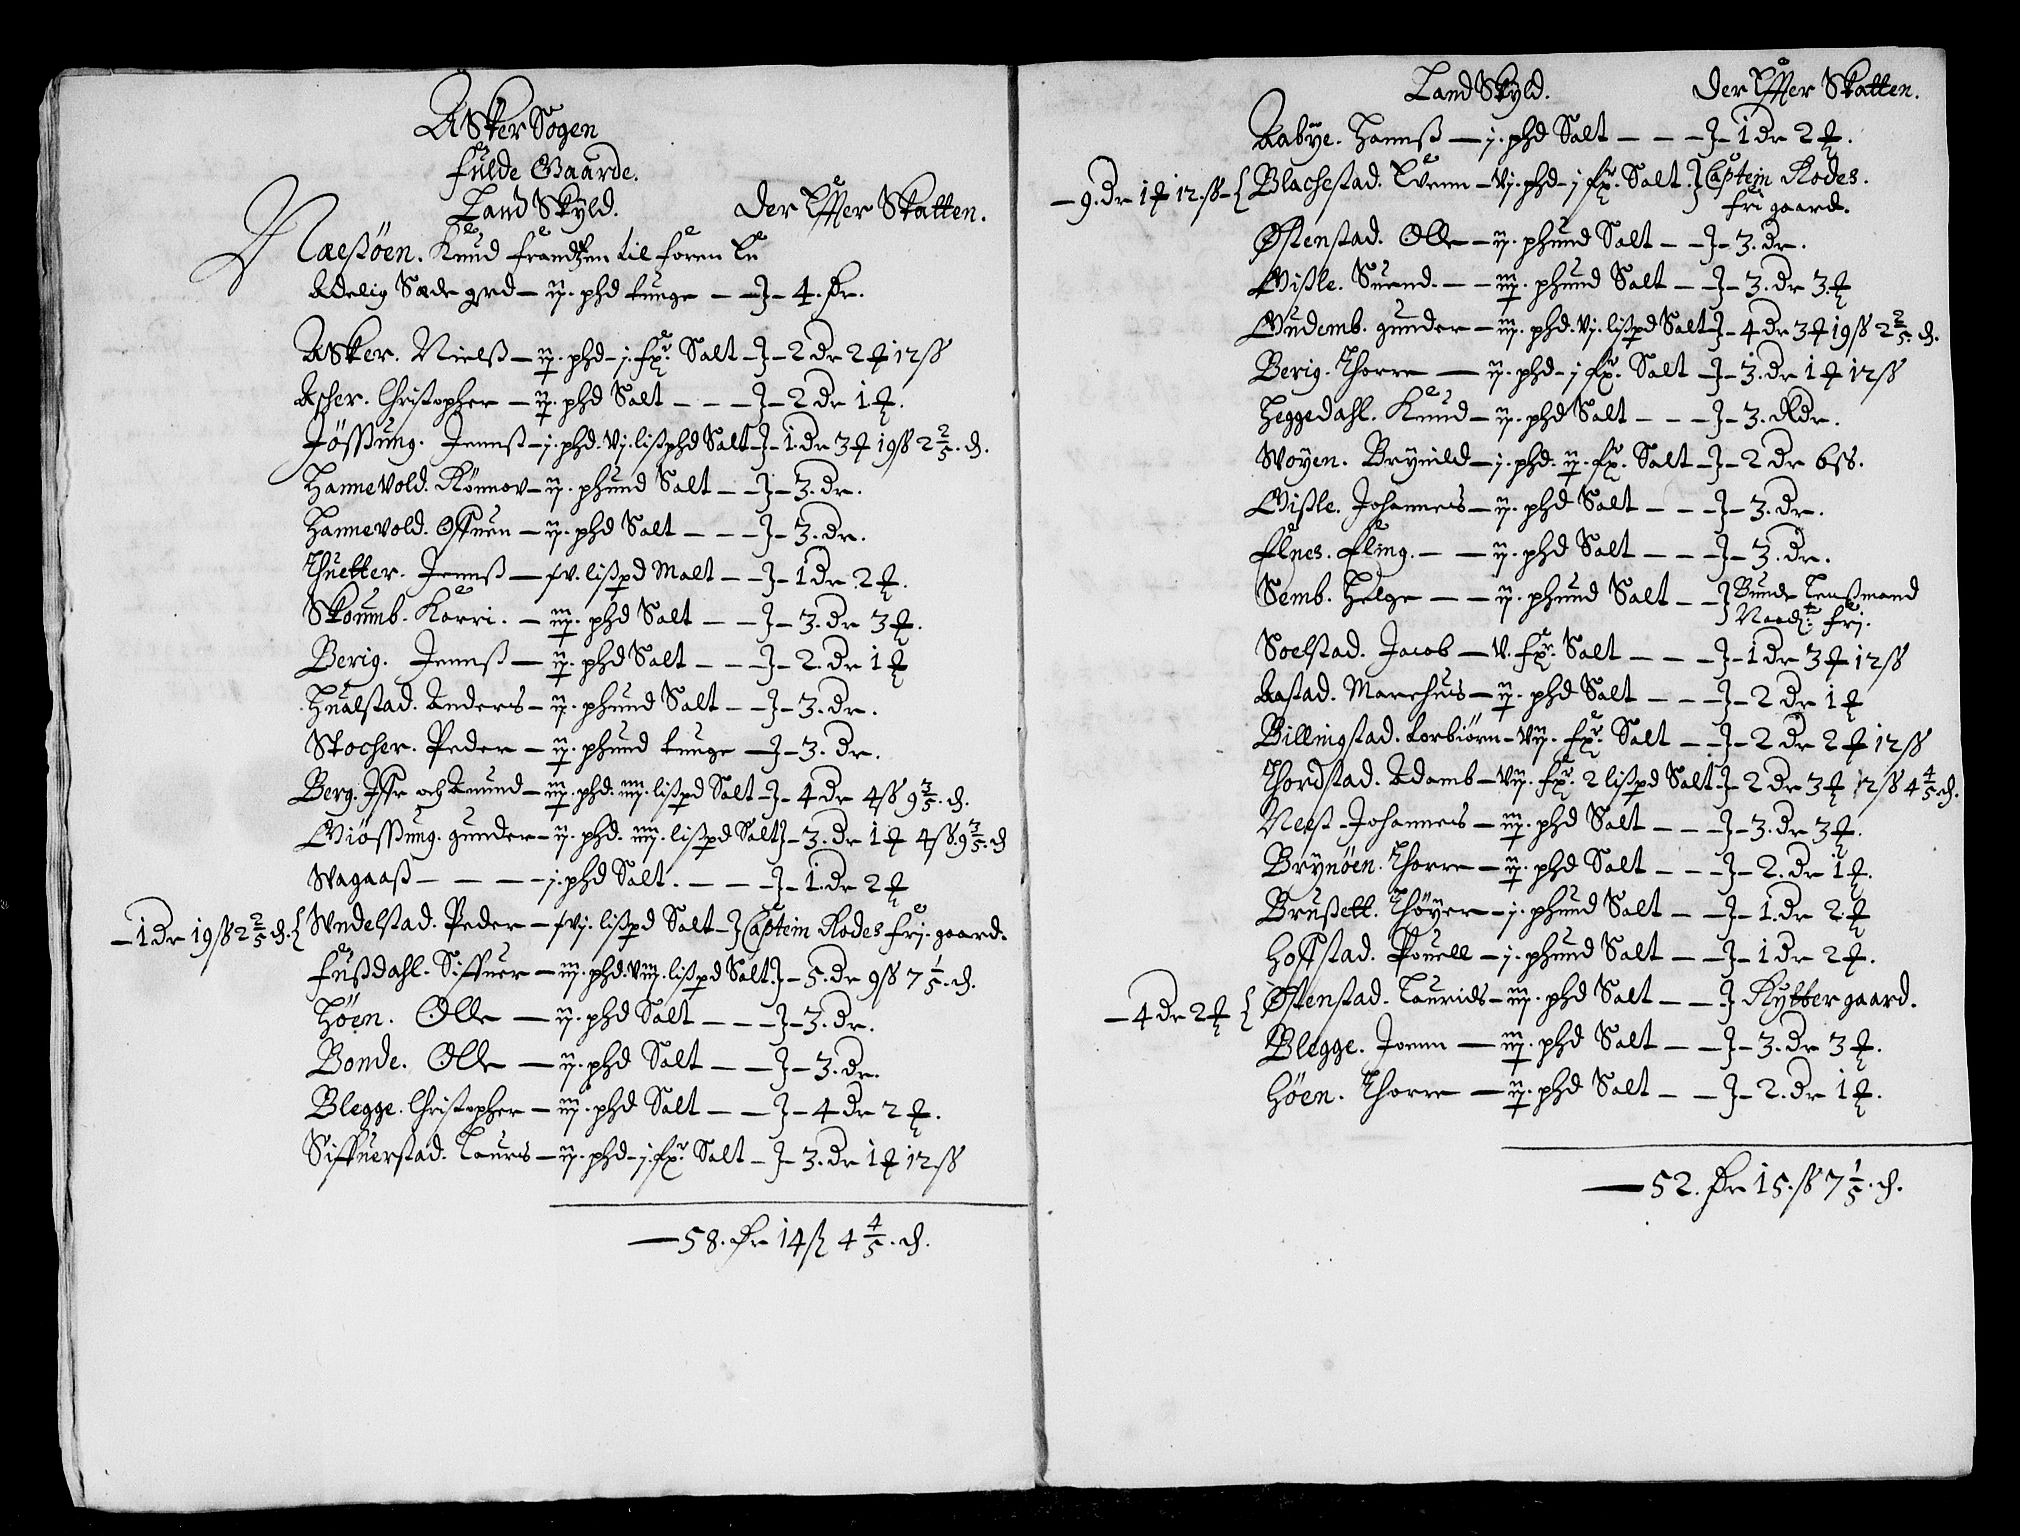 Asker Sogen
Fulde Gaarde.
Land Skyld. Der Effter Skatten.
Næsøen. Knud Frandzen til foren En
Adelig Sæde grd – ij. phd tunge – – 4. dr.
Asker. Nielß – ij. phd – j. fr. Salt – 2 dr 2 ort 12 ß
Ascher. Christopher – ij. phd Salt – – – 2 dr 1 ort.
Jøssung. Jennß – j. phd. vj. lißphd Salt – 1. dr 3 ort 19 ß 2 2/5. d.
Hannevold. Rønnov – ij. phund Salt – – 3. dr.
Hannevold. – ij. phd Salt – – – 3. dr.
Thuetter. Jennß – xv. lißpd Malt – – 1 dr 2 ort.
Skoumb. Karri. – iij. phd Salt – – 3. dr 3 ort.
Berig. Jennß – ij. phd Salt – – – 2. dr 1 ort
Hualstad. Anders – ij. phund Salt – – 3. dr.
Stocher. Peder – ij. phund tunge – 3. dr.
Berg. Iffr och Amund – iij. phd. iiij. lißpd Salt – 4 dr 4 ß 9 3/5. d.
Giøssung. gunder – ij. phd. iiij. lißpd Salt – 3. dr 1 ort 4 ß. 9 3/5. d
Wagaaß – – – – j. phd Salt. – – – 1. dr 2 ort
– 1 dr 19 ß 2 2/5 d. { Wndelstad. Peder – xvj. lißpd Salt – } Captein Rodes fri. gaard.
Fußdahl. Siffuer – iij. phd. viij. lißpd Salt – 5. dr 9 ß 7 1/5. d.
Høen. Olle – ij. phd Salt – – – 3. dr.
Bonde. Olle – ij. phd Salt – – 3. dr.
Blegge. Christopher – iij. phd Salt – – 4 dr 2 ort.
Siffuerstad. Laurs – ij. phd – j. fr. Salt – 3. dr 1 ort 12 ß
– 58. dr 14 ß 4 4/5. d.
Land Skyld. Der Effter Skatten.
Aabye. Hannß – j. phd Salt – – – 1 dr 2 ort.
– 9. dr 1 ort 12. ß – { Blachestad. Euenn – vj. phd – j fr. Salt. } Captein Rodes.
fri gaard.
Østenstad. Olle – ij. phund Salt – – 3. dr.
Gißle. Suend. – – iij. phund Salt – – 3. dr 3. ort
Gudemb. gunder – iij. phd. vj. lißpd Salt – 4 dr 3 ort 19 ß 2 2/5. d.
Berig. Thorre – ij. phd – j fr. Salt – 3. dr 1 ort 12 ß
Heggedahl. Knud – ij. phd Salt – – – 3. Rdr.
Woyen. Brynild – j. phd. ij. fr. Salt – 2 dr 6 ß.
Gißle. Johannes – ij. phd Salt – – – 3. dr.
Elnes. Eling. – – ij. phd Salt – – – 3. dr.
Semb. Helge – – ij. phund Salt – – } Bunde Lensmand
fri.
Soelstad. Jacob – v. fr. Salt – – – 1 dr 3 ort 12 ß
Aastad. Marchus – ij. phd Salt – – – 2 dr 1 ort
Billingstad. torbiørn – vij. fr. Salt – – 2 dr 2 ort 12 ß
Thordstad. Adamb – vij. fr. 2 lißpd Salt – 2 dr 3 ort 12 ß 4 4/5 d.
Neeß – Johannes – iij. phd Salt – – – 3. dr 3 ort.
Brynøen. Thorre – ij. phd Salt – – – 2. dr 1 ort.
Brußett. Thøger – j. phund Salt – – 1. dr 2. ort
Hoffstad. Pouell – j. phund Salt – – 1 dr 2 ort.
– 4 dr 2 ort { Østenstad. Laurids – iij. phd Salt – – } Rytter gaard.
Blegge. Joenn – iij. phd Salt – – 3. dr 3 ort.
Høen. Thorre – ij. phd Salt – – 2. dr 1 ort.
– 52. dr 15. ß 7 1/5. d.